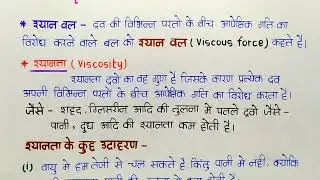 * श्यान बल - द्रव की विभिन्न परतो के बीच आपेक्षिक गति का
विरोध करने वाले बल को श्यान बल (Viscous force) कहते है।
* श्यानता (Viscosity)
श्यानता द्रवो का वह गुण है जिसके कारण प्रत्येक द्रव
अपनी विभिन्न परतो के बीच आपेक्षिक गति का विरोध करता है।
जैसे - शहद, ग्लिसरीन आदि की तुलना मे पतले द्रवो जैसे -
पानी, दूध आदि की श्यानता कम होती है।
श्यानता के कुछ उदाहरण -
(i) वायु मे हम तेजी से चल सकते है किंतु पानी मे नही, क्योकि